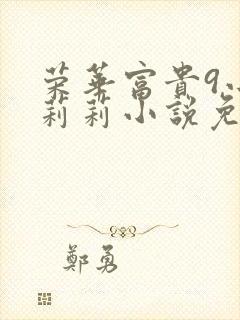 荣華富貴9
莉莉小說免
鄭勇